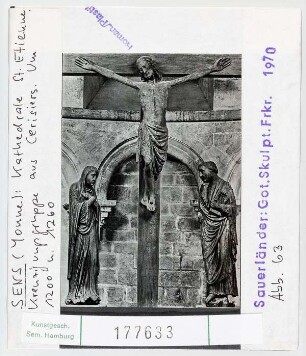 SENS (Yonne): Kathedrale St. Etienne.
Kreuzigungsgruppe aus Cerisiers. Um
1200 u. 1260
Sauerländer: Got. Skulpt. Frkr. 1970
Abb. 63
Kunstgesch.
Sem. Hamburg
177633